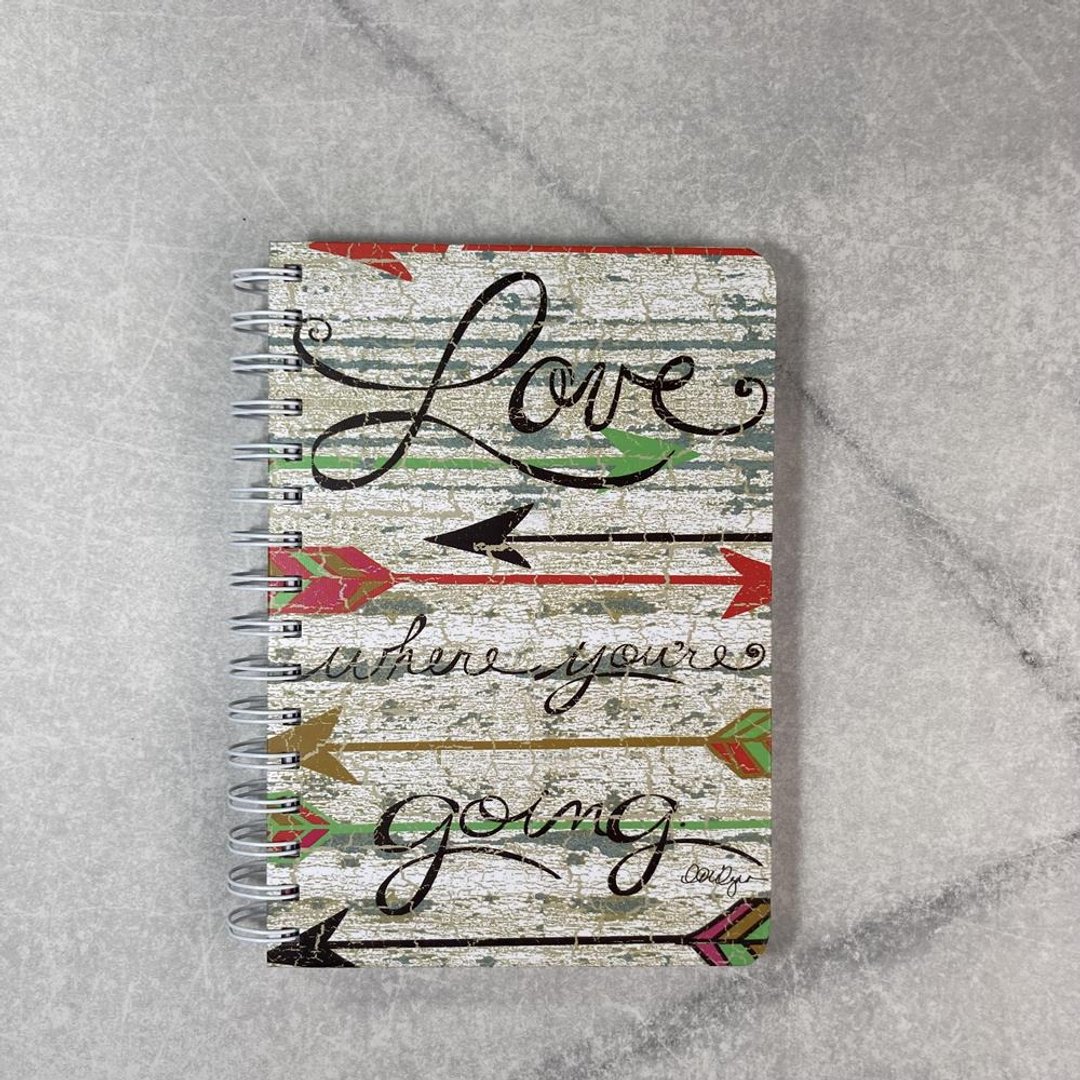 Love
where you're
going.